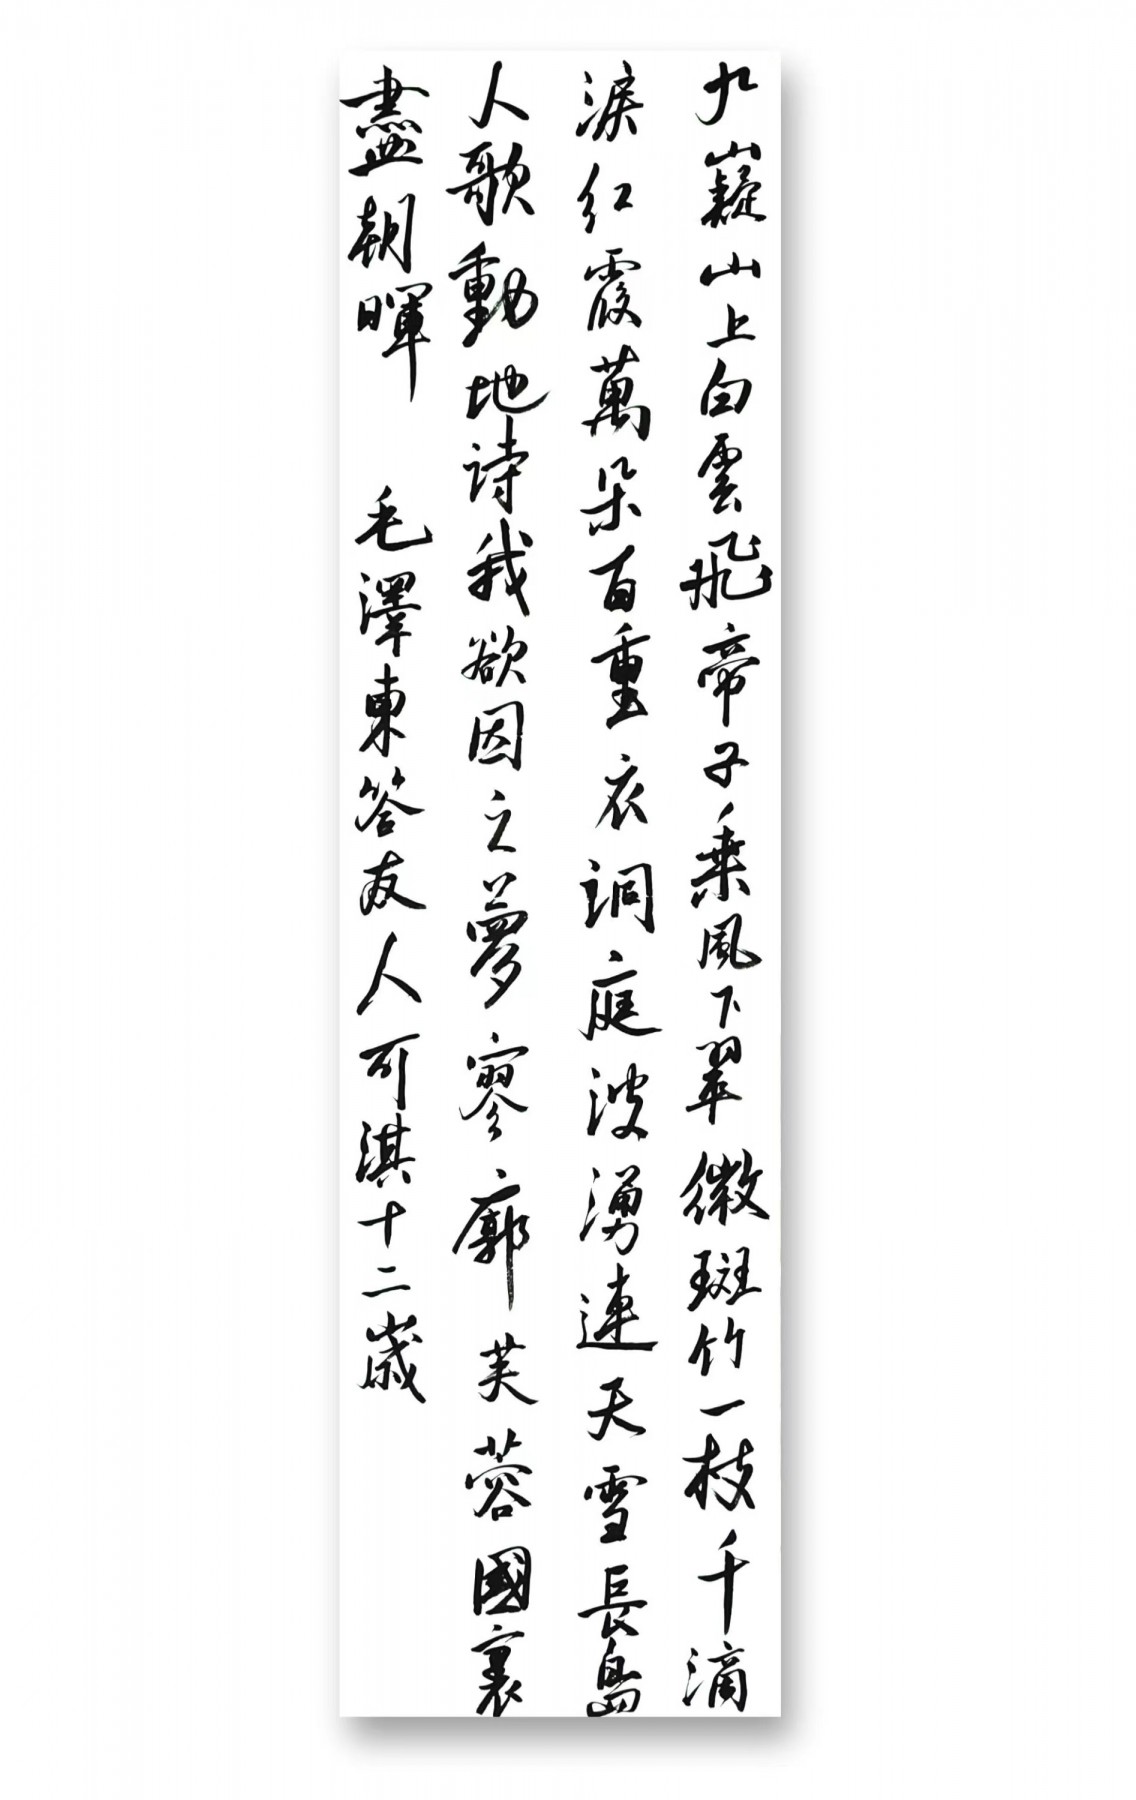 九嶷山上白雲飛帝子乗風下翠微斑竹一枝千滴
淚紅霞萬朵百重衣洞庭波湧連天雪長島
人歌動地詩我欲因之夢寥廓芙蓉國裏
盡朝暉 毛澤東答友人可淇十二歲